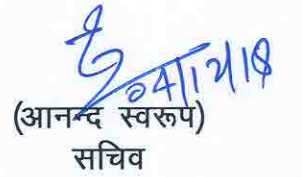 04/12/18
(आनन्द स्वरूप)
सचिव